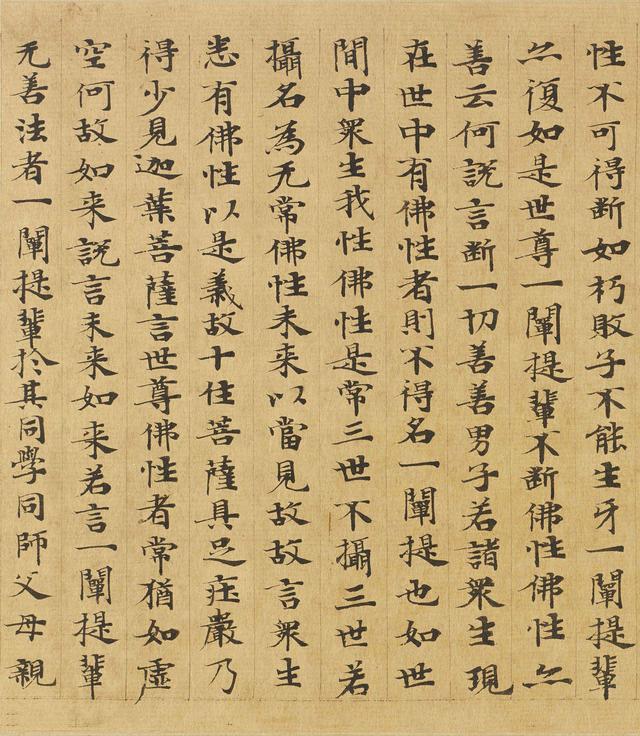 性不可得断如朽敗子不能生牙一闡提輩
亦復如是世尊一闡提輩不断佛性佛性亦
善云何說言断一切善善男子若諸衆生現
在世中有佛性者則不得名一闡提也如世
間中衆生我性佛性是常三世不攝三世若
攝名為无常佛性未来以當見故故言衆生
悉有佛性以是義故十住菩薩具足莊嚴乃
得少見迦葉菩薩言世尊佛性者常猶如虛
空何故如来說言未来如来若言一闡提輩
无善法者一闡提輩於其同學同師父母親